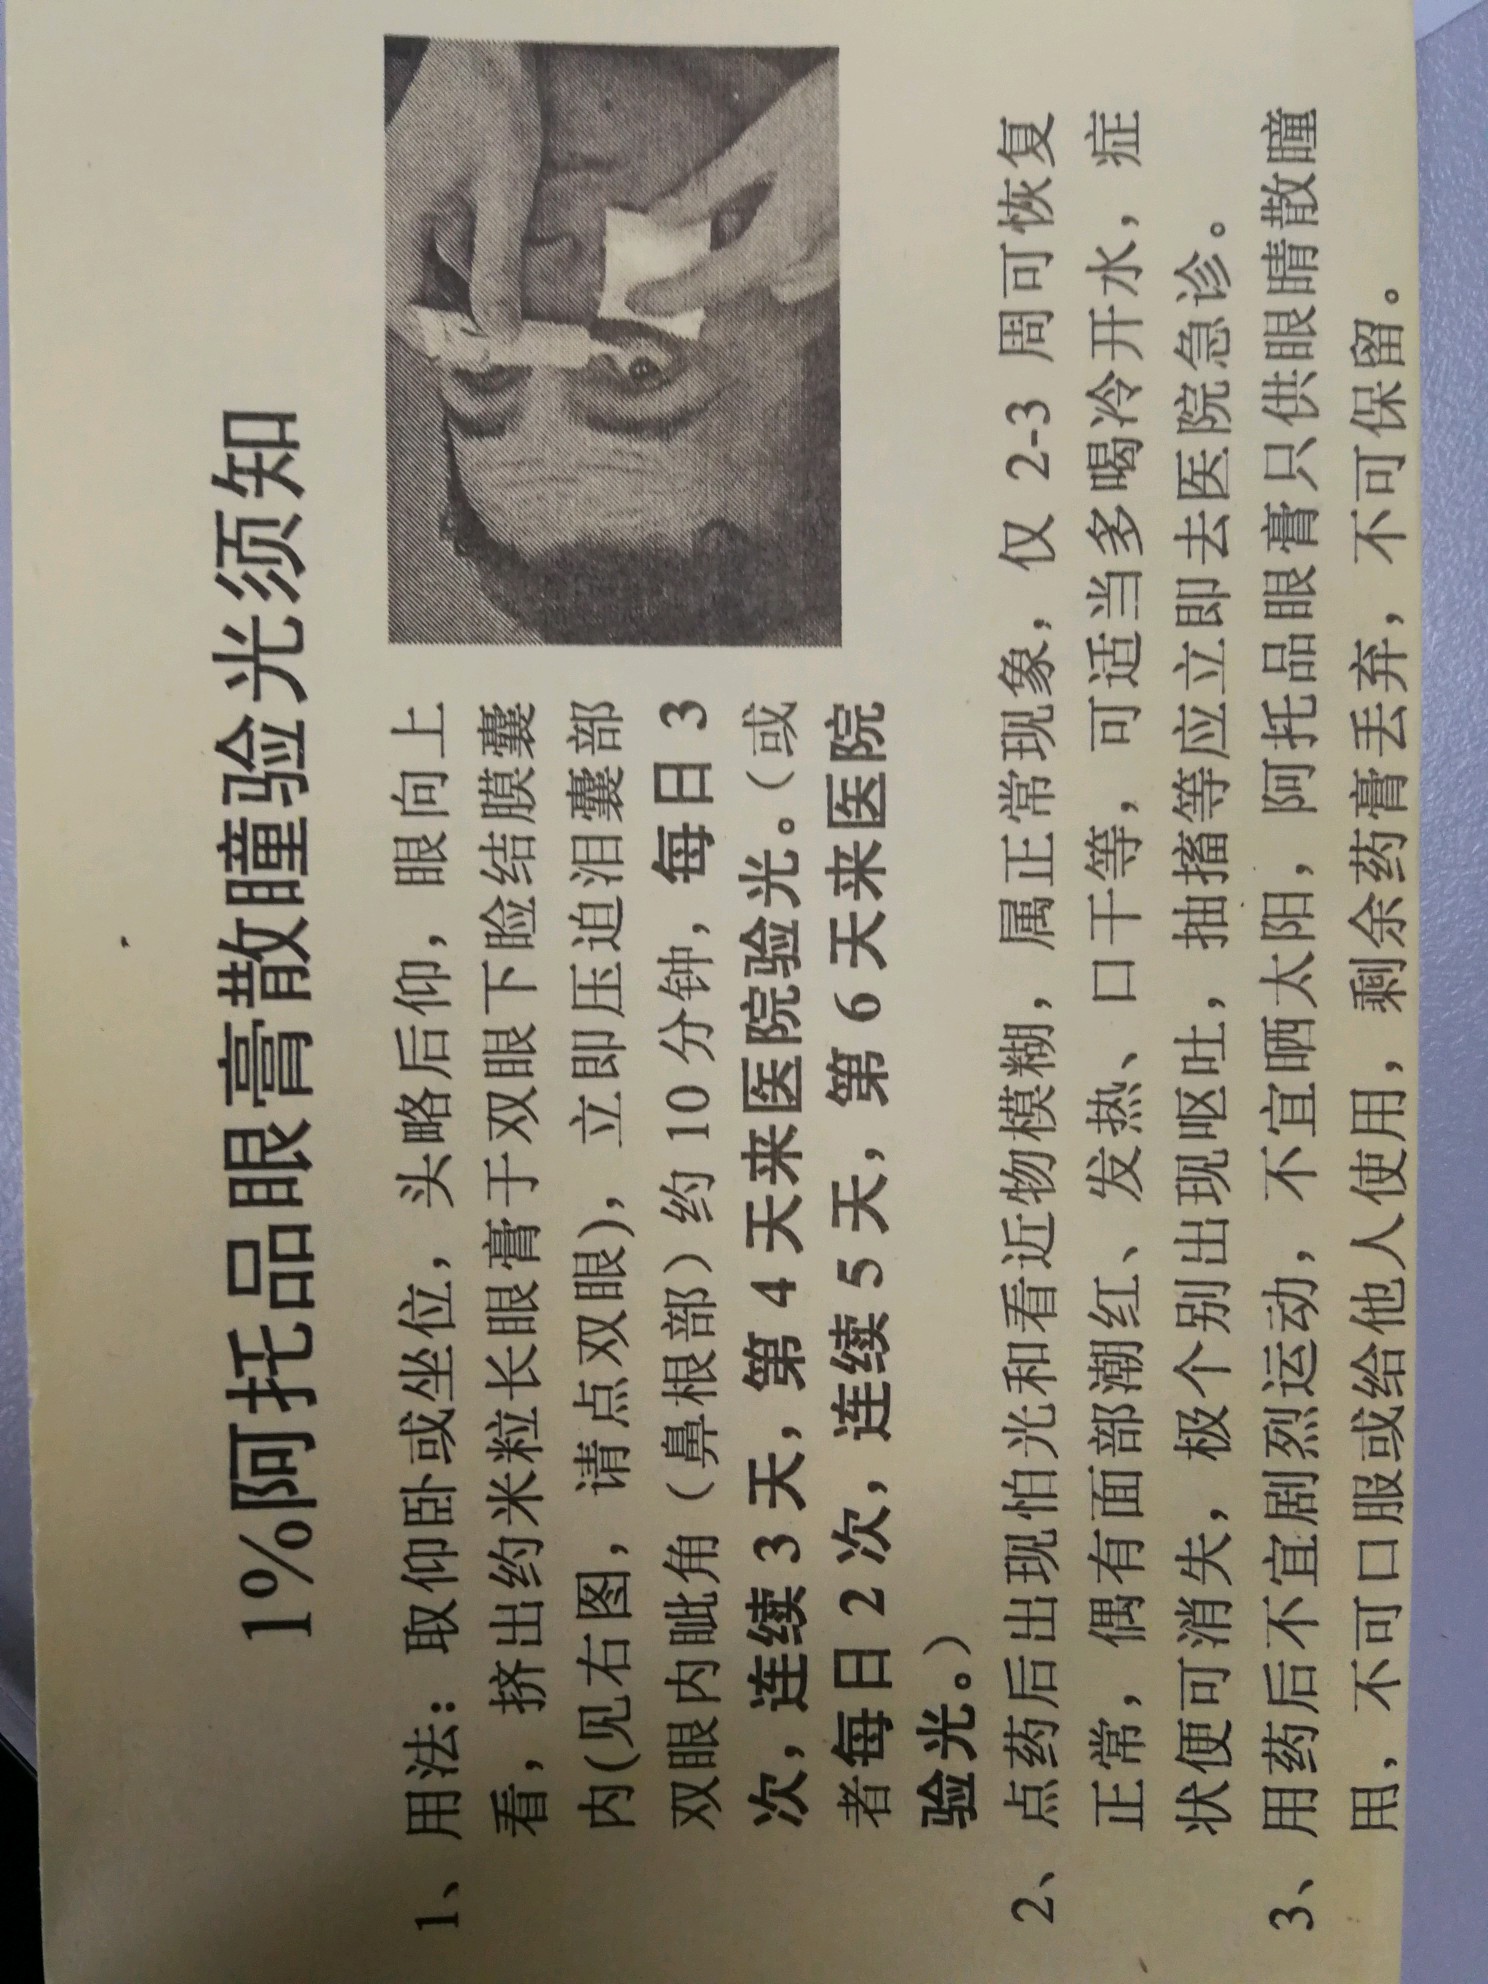 1%阿托品眼膏散瞳验光须知
1、用法：取仰卧或坐位，头略后仰，眼向上
看，挤出约米粒长眼膏于双眼下睑结膜囊
内(见右图，请点双眼)，立即压迫泪囊部
双眼内眦角（鼻根部）约 10 分钟，每日 3
次，连续 3 天，第 4 天来医院验光。（或
者每日 2 次，连续 5 天，第 6 天来医院
验光。）
2、点药后出现怕光和看近物模糊，属正常现象，仅 2-3 周可恢复
正常，偶有面部潮红、发热、口干等，可适当多喝冷开水，症
状便可消失，极个别出现呕吐，抽搐等应立即去医院急诊。
3、用药后不宜剧烈运动，不宜晒太阳，阿托品眼膏只供眼睛散瞳
用，不可口服或给他人使用，剩余药膏丢弃，不可保留。